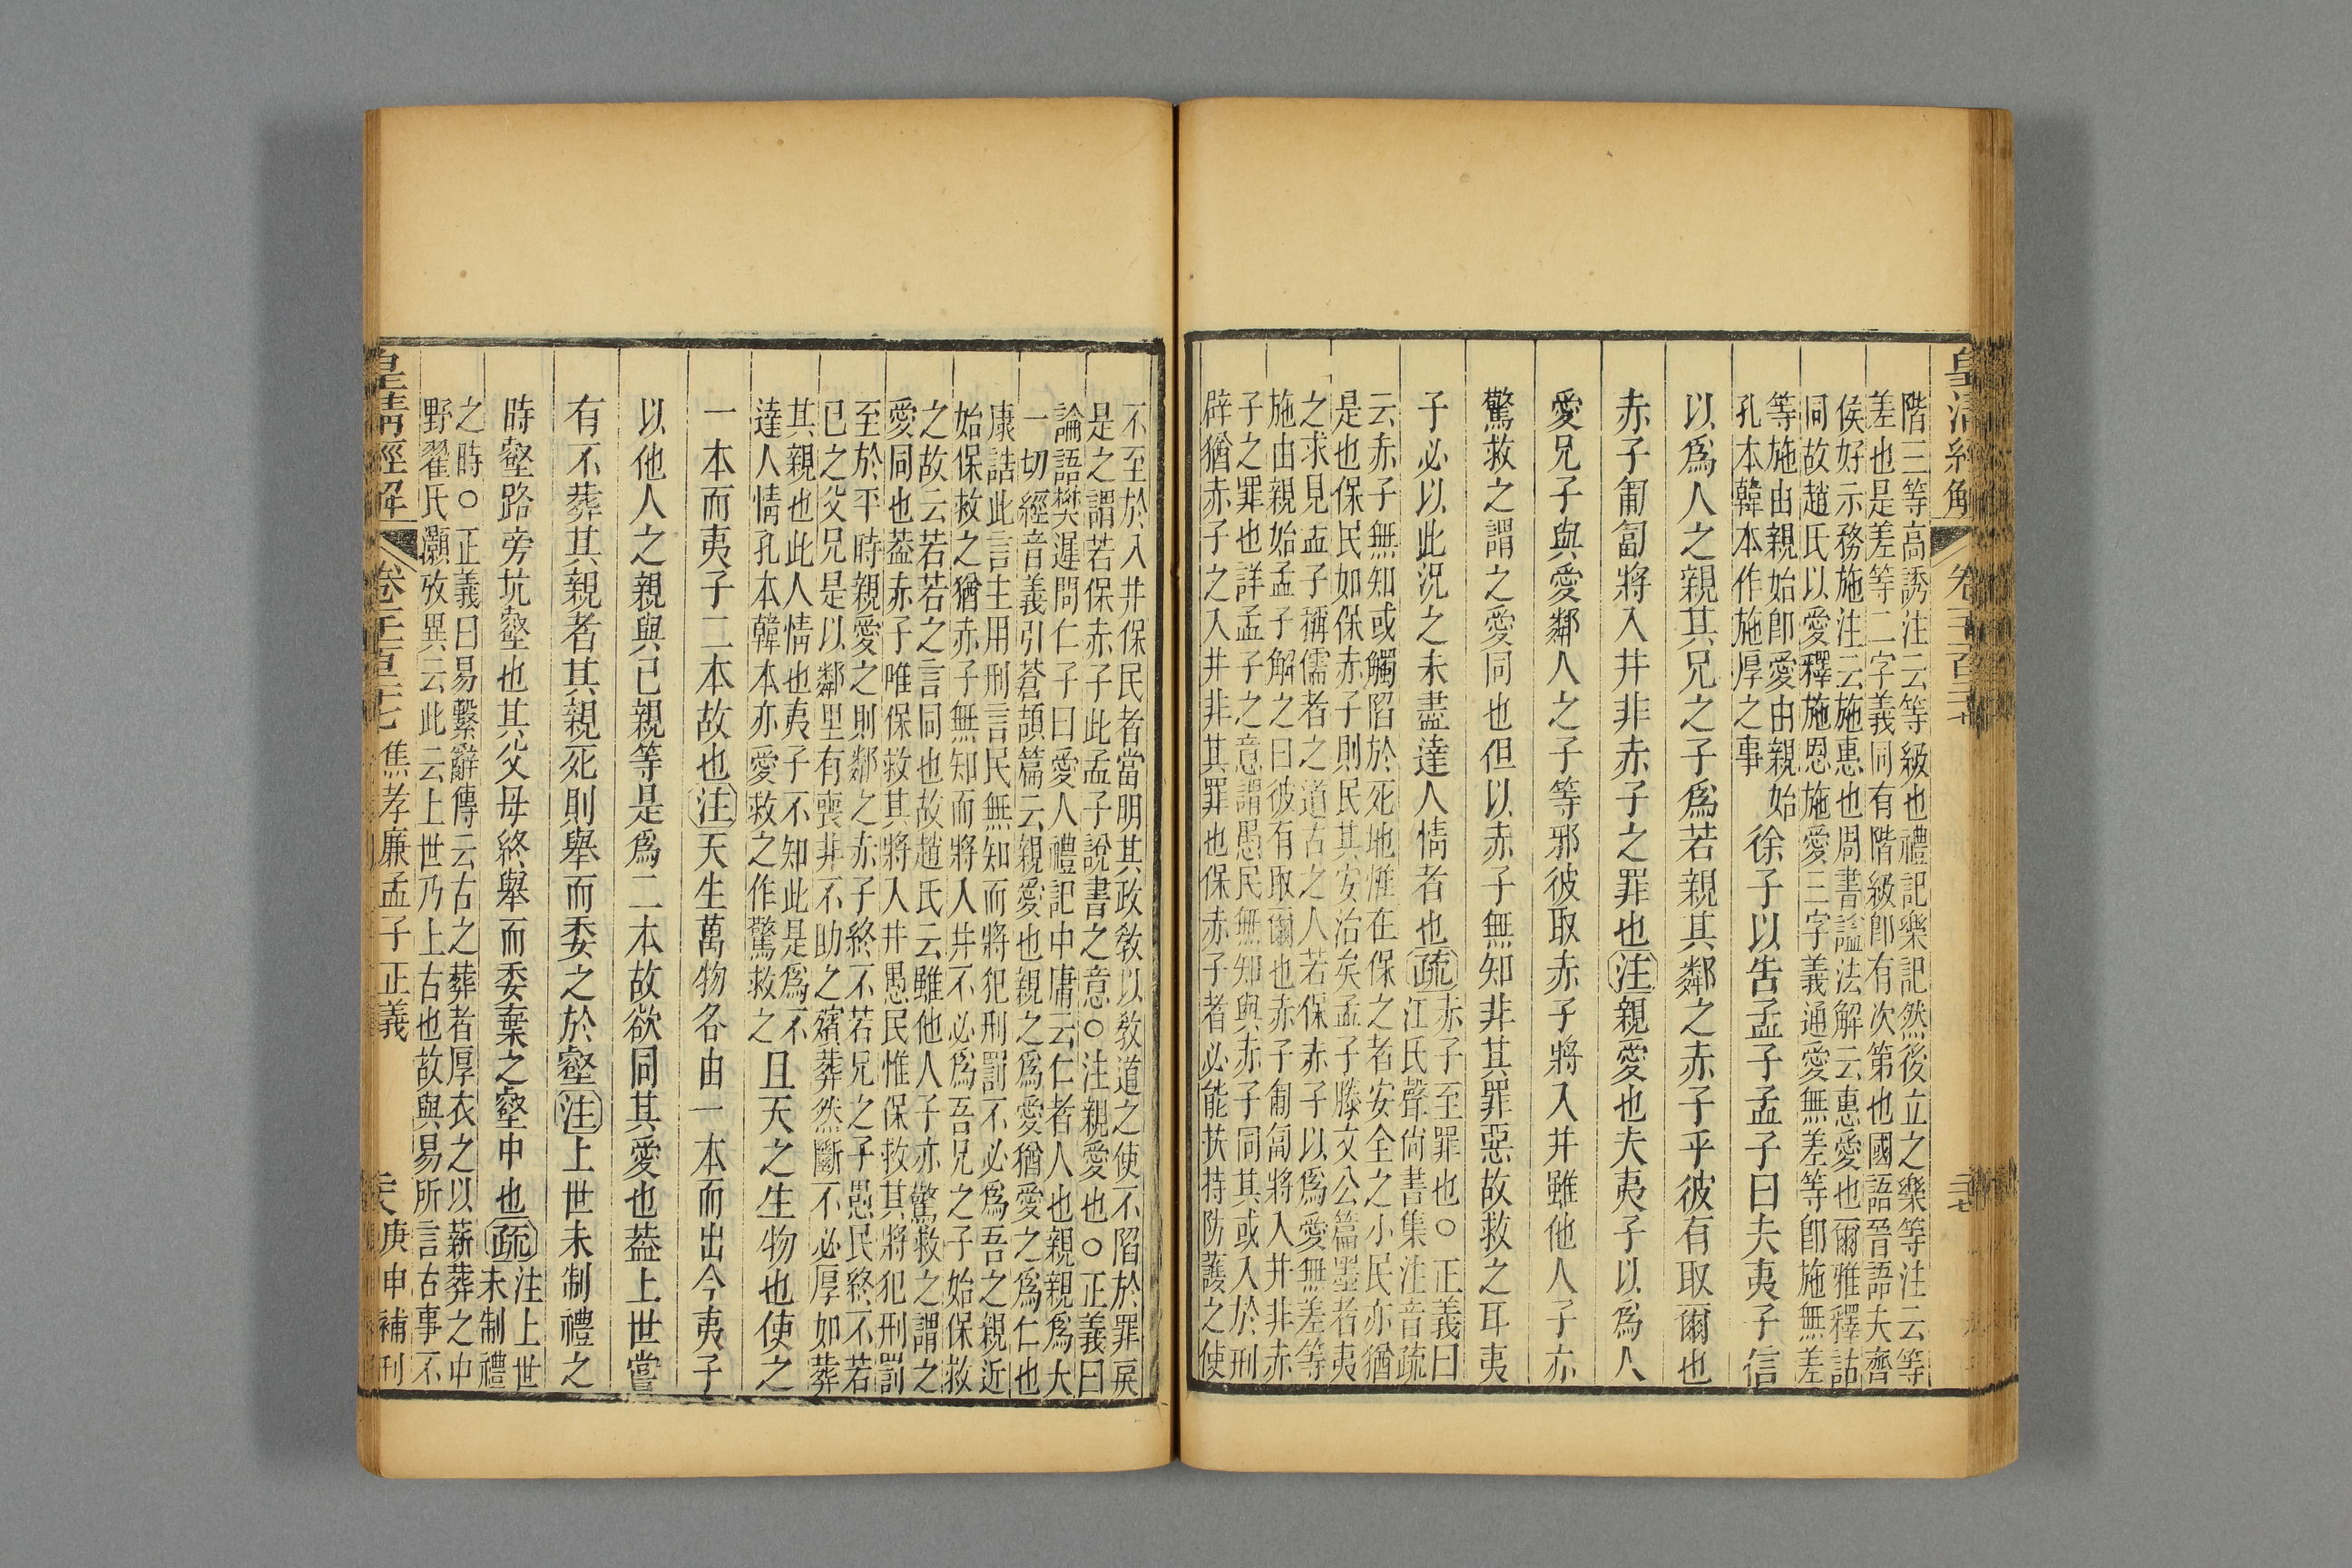 皇清經解 卷千百三十七
階三等高誘注云等級也禮記樂記然後立之樂等注云等
差也是差等二字義同有階級卽有次第也國語晉語夫齊
侯好示務施注云施惠也周書諡法解云惠愛也爾雅釋詁
同故趙氏以愛釋施恩施愛三字義通愛無差等卽施無差
等施由親始卽愛由親始
孔本韓本作施厚之事
徐子以告孟子孟子曰夫夷子信
以爲人之親其兄之子爲若親其鄰之赤子乎彼有取爾也
赤子匍匐將入井非赤子之罪也注親愛也夫夷子以爲人
愛兄子與愛鄰人之子等邪彼取赤子將入井雖他人子亦
驚救之謂之愛同也但以赤子無知非其罪惡故救之耳夷
子必以此況之未盡達人情者也疏
赤子至罪也○正義曰
江氏聲尚書集注音疏
云赤子無知或觸陷於死地惟在保之者安全之小民亦猶
是也保民如保赤子則民其安治矣孟子滕文公篇墨者夷
之求見孟子稱儒者之道古之人若保赤子以爲愛無差等
施由親始孟子解之曰彼有取爾也赤子匍匐將入井非赤
子之罪也詳孟子之意謂愚民無知與赤子同其或入於刑
辟猶赤子之入井非其罪也保赤子者必能扶持防護之使
不至於入井保民者當明其政敎以敎道之使不陷於罪戾
是之謂若保赤子此孟子說書之意○注親愛也○正義曰
論語樊遲問仁子曰愛人禮記中庸云仁者人也親親爲大
一切經音義引蒼頡篇云親愛也親之爲愛猶愛之爲仁也
康誥此言主用刑言民無知而將犯刑罰不必爲吾之親近
始保救之猶赤子無知而將入井不必爲吾兄之子始保救
之故云若若之言同也故趙氏云雖他人子亦驚救之謂之
愛同也葢赤子唯保救其將入井愚民惟保救其將犯刑罰
至於平時親愛之則鄰之赤子終不若兄之子愚民終不若
已之父兄是以鄰里有喪非不助之殯葬然斷不必厚如葬
其親也此人情也夷子不知此是爲不
達人情孔本韓本亦愛救之作驚救之
且天之生物也使之
一本而夷子二本故也注天生萬物各由一本而出今夷子
以他人之親與已親等是爲二本故欲同其愛也葢上世嘗
有不葬其親者其親死則舉而委之於壑注上世未制禮之
時壑路旁坑壑也其父母終舉而委棄之壑中也疏
注上世
未制禮
之時○正義曰易繫辭傳云古之葬者厚衣之以薪葬之中
野翟氏灝攷異云此云上世乃上古也故與易所言古事不
皇清經解 卷千百三十七 焦孝廉孟子正義 庚申補刊